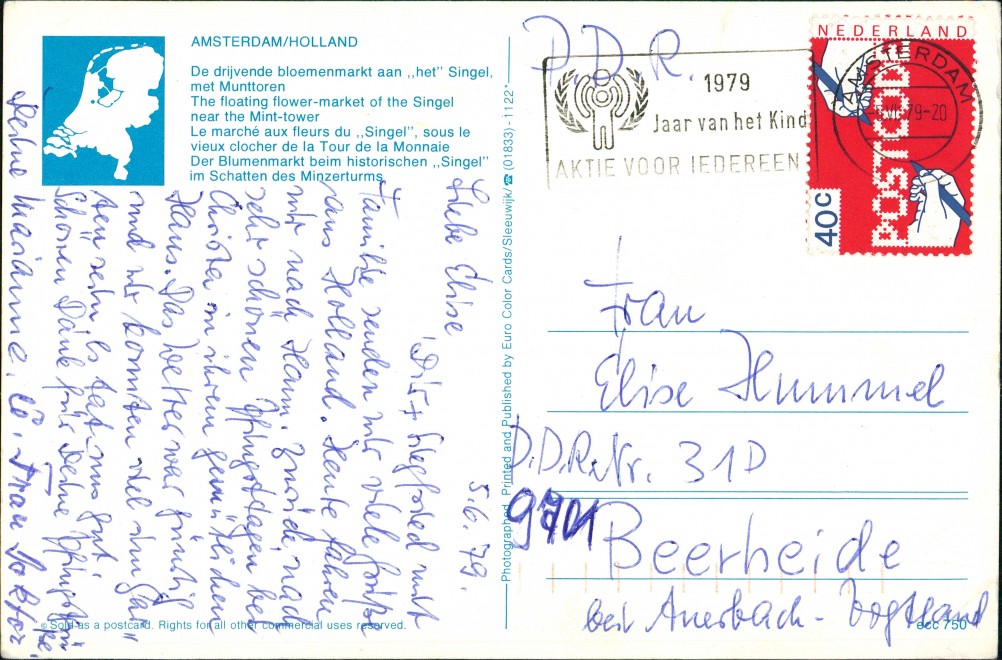 AMSTERDAM/HOLLAND
De drijvende bloemenmarkt aan ,,het" Singel,
met Munttoren
The floating flower-market of the Singel
near the Mint-tower
Le marché aux fleurs du ,,Singel", sous le
vieux clocher de la Tour de la Monnaie
Der Blumenmarkt beim historischen ,,Singel"
im Schatten des Minzerturms
5.6.79.
Liebe Elise
Dir + Siegfried mit
Familie senden wir viele Grüße
aus Holland. Heute fahren
wir nach Ham. zurück nach
sehr schönen Pfingsttagen bei
Christa in ihrem gemütlichen
Haus. Das Wetter war günstig
und wir konnten viel im Gar=
ten sein. Es tat uns gut.
Schönen Dank für Deine Pfingst
Deine Marianne.
© Sold as a postcard. Rights for all other commercial uses reserved.
Photographed, Printed and Published by Euro Color Cards/Sleeuwijk/☎ (01833) - 1122*
D.D.R.
1979
Jaar van het Kind
AKTIE VOOR IEDEREEN
NEDERLAND
POSTCODE
40c
AMSTERDAM
79-20
Frau
Elise Hummel
D.D.R. Nr. 31D
9701
Beerheide
bei Auerbach - Vogtland
ecc 750